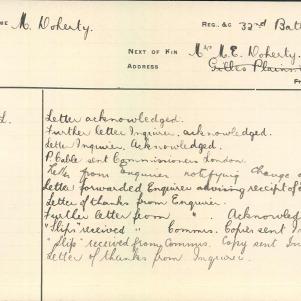 ME M. Doherty. REG. &C 32nd Batt
NEXT OF KIN Mrs M.E. Doherty.
ADDRESS Gillies Plains
Letter acknowledged.
Further letter Inquirer, acknowledged.
Letter Inquirer. Acknowledged.
P. Cable sent Commissioners London.
Letter from Enquirer notifying change o
Letter forwarded Enquirer advising receipt of
Letter of thanks from Enquirer.
Further letter from " . Acknowled
"Slips" received " Commis. Copies sent In
"Slip" received from Commis. Copy sent In
Letter of thanks from Inquirer.